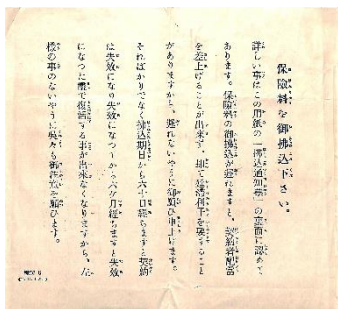 保險料を御拂込下さい。
詳しい事はこの用紙の「拂込通知書」の裏面に認めて
あります。保險料の御拂込が遲れますと、契約者配當
を差上げることが出來ず、却て延滯利子を要すること
がありますから、遲れないやうに御願ひ申上げます。
そればかりでなく拂込期日から六十日經ちますと契約
は失效になり失效になつてから六ケ月經ちますと失效
になつた儘で復活する事が出來なくなりますから、左
樣の事のないやうに呉々も御注意を願ひます。